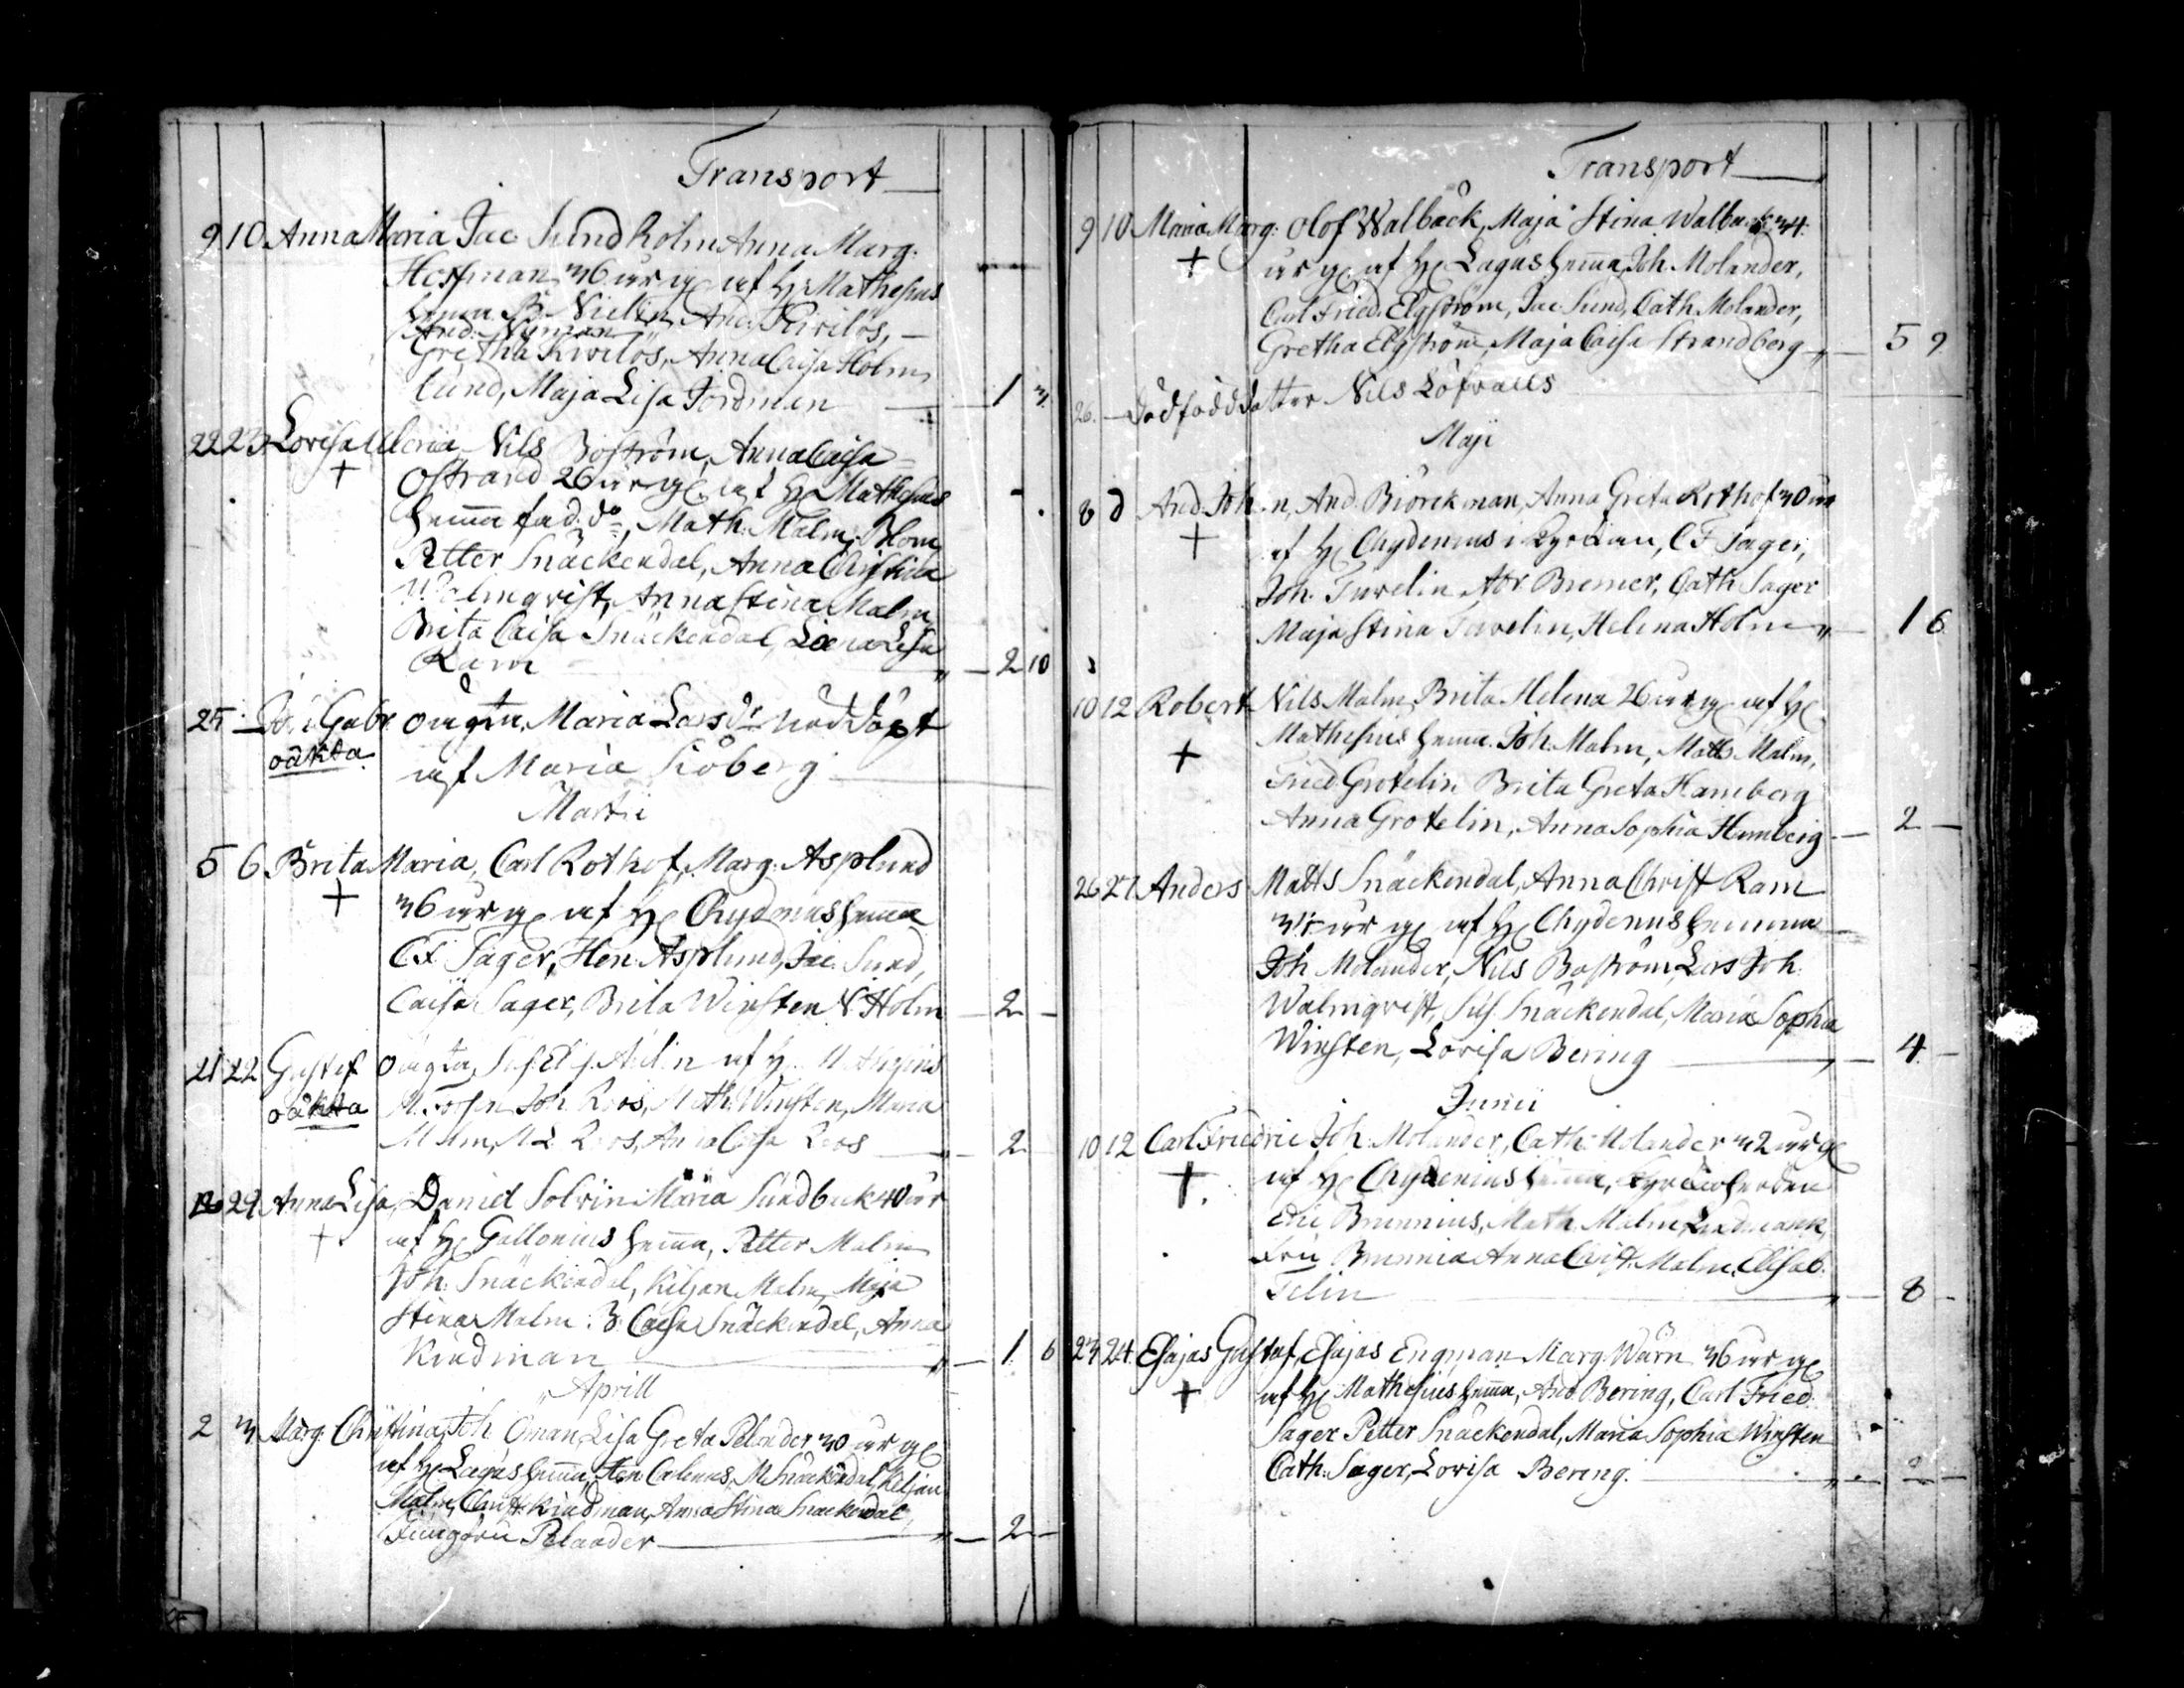 Transport
9 10 Anna Maria Jac Sundholm Anna Marg.
Hoffman 36 år g af H Mathesius
hemma Nielin, And. Kivilös,
And. Nyman
Gretha Kivilös, Anna Caisa Holm
lund, Maja Lisa Fordman 1 3
22 23 Lovisa Ulrica Nils Boström, Anna Caisa
Ostrand 26 år g af H Mathesius
hemma fad. do, Math. Malm, Blom
Petter Snäckendal, Anna Christina
Walmqvist, Anna Stina Malm
Brita Caisa Snäckendal, Lisa
Ram 2 10
25 Gabr. oägta, Maria Larsdr nöddöpt
oäkta
af Maria Sjöberg
Martii
5 6 Brita Maria, Carl Rothof, Marg. Asplund
36 år g af H Chydenius hemma
C F Sager, Hen. Asplund, Jac. Sund,
Caisa Sager, Brita Winsten N Holm 2
21 22 Gustaf oägta, af H Mathesius
oäkta
Joh. Roos, Math. Winsten, Maria
Malm, M L Roos, Anna Caisa Roos 2
29 Anna Lisa, Daniel Solvin Maria Sundback 40 år
af H Gallonius hemma, Petter Malm
Joh. Snäckendal, Kiljan Malm, Maja
Stina Malm B. Caisa Snäckendal, Anna
Kindman 1 6
Aprill
2 3 Marg. Christina, Joh Öman, Lisa Greta Pelander 30 år g
af H Lagus hemma, Hen Calenus, M Snäckendal, Kiljan
Malm, Christ. Kindman, Anna Stina Snäckendal,
Jungfru Pelander 2
Transport
9 10 Maria Marg. Olof Walbäck, Maja Stina Walback 34
år g af H Lagus hemma, Joh. Molander,
Carl Fried. Elgström, Jac Sund, Cath. Molander,
Gretha Elgström, Maja Caisa Strandberg 5 9
26. Dödfödd dotter Nils Löfvalls
Maji
8 d And. Joh n, And. Biörckman, Anna Greta Rothof 30 år
af H Chydenius i Kyrckan, C F Sager,
Joh. Tuvelin Abr Bremer, Cath Sager
Maja Stina Tuvelin, Helena Holm 1 6
10 12 Robert Nils Malm, Brita Helena 26 år g af H
Mathesius hemma. Joh. Malm, Matts Malm,
Fried Grotelin Brita Greta Hamberg
Anna Grotelin, Anna Sophia Hamberg 2
26 27 Anders Matts Snäckendal, Anna Christ Ram
35 år g af H Chydenius hemma
Joh Molander, Nils Boström, Lars Joh.
Walmqvist, Sus. Snäckendal, Maria Sophia
Winsten, Lovisa Bering 4
Junii
10 12 Carl Friedric Joh. Molander, Cath. Molander 32 år g
af H Chydenius hemma, Kyrckoherden
Eric Brunnius, Math Malm,
Fru Brunnia Anna Christ. Malm, Elisab.
Telin 8
23 24 Esajas Gustaf, Esajas Engman Marg. Wärn 36 år g
af H Mathesius hemma, And Bering, Carl Fried.
Sager Petter Snäckendal, Maria Sophia Winsten
Cath. Sager, Lovisa Bering. 2